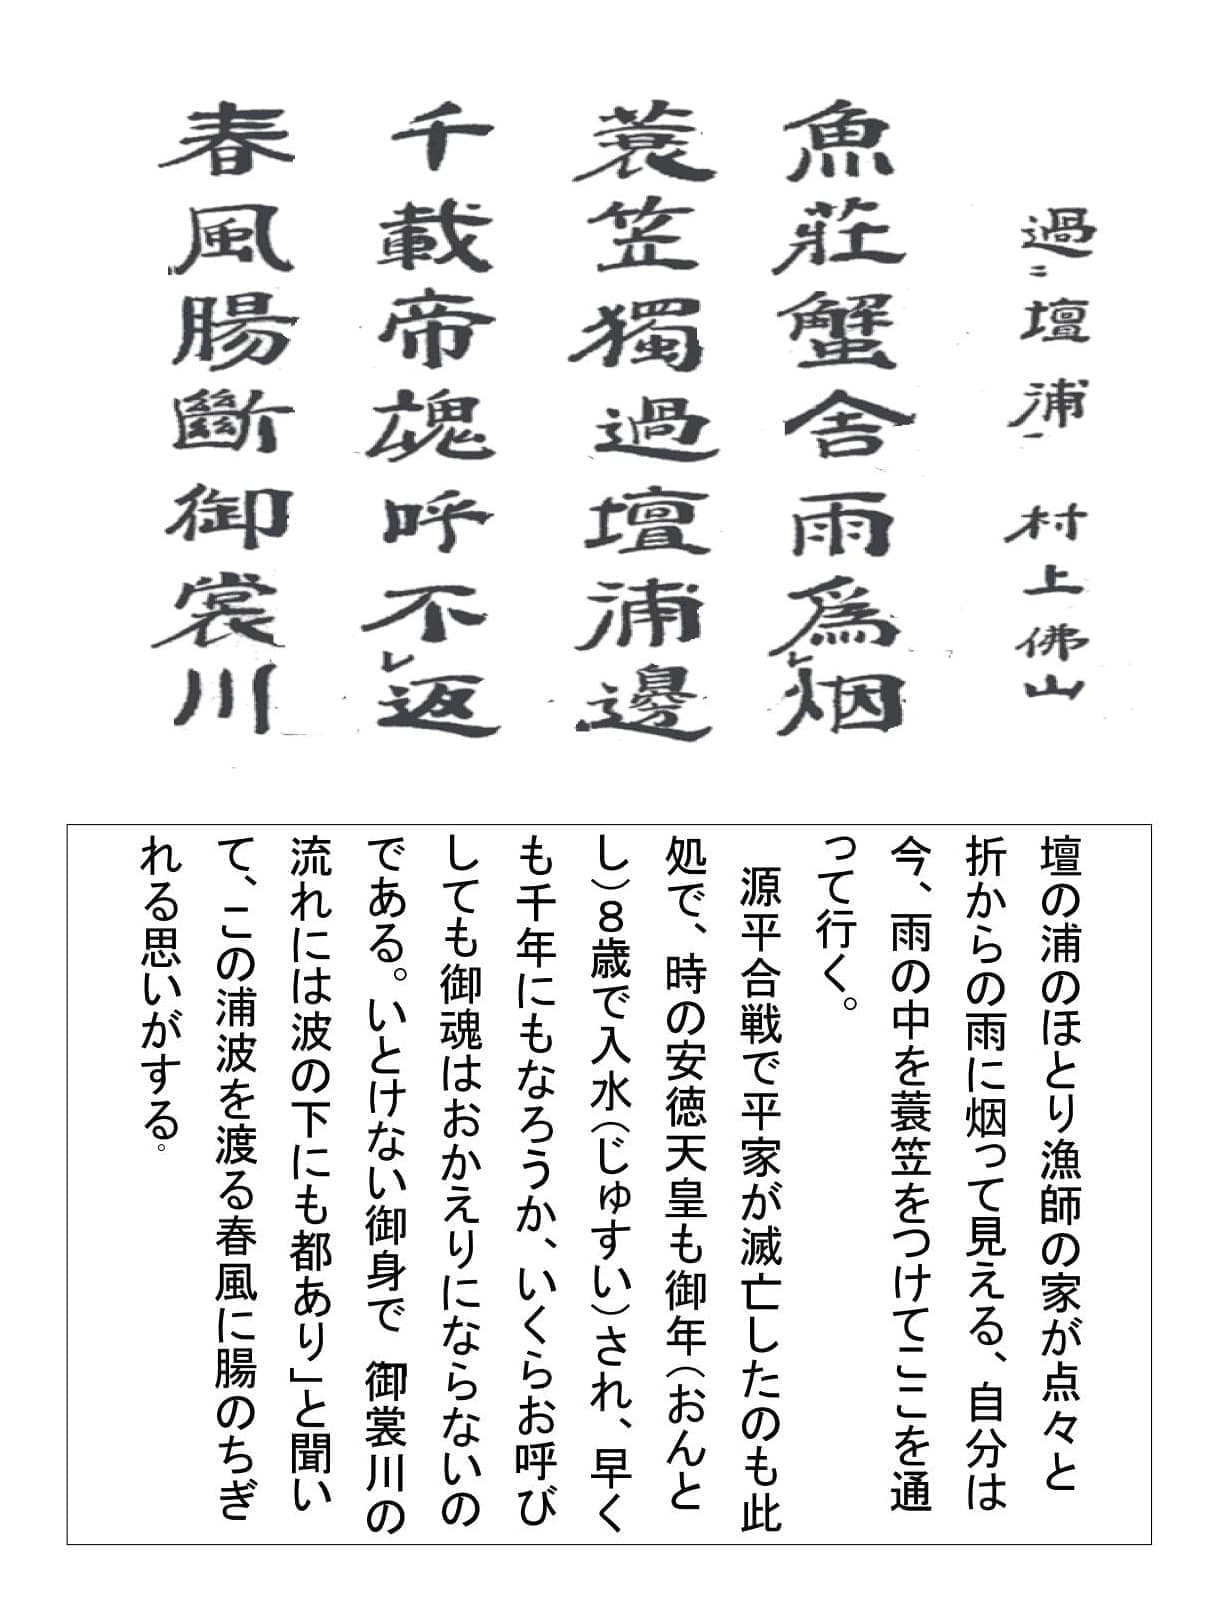 過二壇浦一 村上佛山
魚莊蟹舎雨爲レ烟
蓑笠獨過壇浦邊
千載帝魂呼不レ返
春風腸斷御裳川
壇の浦のほとり漁師の家が点々と
折からの雨に烟って見える、自分は
今、雨の中を蓑笠をつけてここを通
って行く。
源平合戦で平家が滅亡したのも此
処で、時の安徳天皇も御年(おんと
し)8歳で入水(じゅすい)され、早く
も千年にもなろうか、いくらお呼び
しても御魂はおかえりにならないの
である。いとけない御身で 御裳川の
流れには波の下にも都あり」と聞い
て、この浦波を渡る春風に腸のちぎ
れる思いがする。